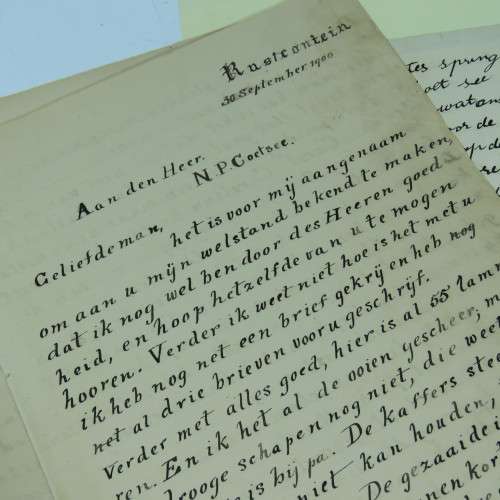 Rustfontein
30 September 1900
Aan den Heer.
N.P. Coetsee.
Geliefde man,
het is voor mij aangenaam
om aan u mijn welstand bekend te maken,
dat ik nog wel ben door des Heeren goed
heid, en hoop hetzelfde van u te mogen
hooren. Verder ik weet niet hoe is het met u
ik heb nog net een brief gekrijen heb nog
net al drie brieven voor u geschrijf.
Verder met alles goed, hier is al 55 lamm
ren. En ik het al de ooien gescheer, m
drooge schapen nog niet, die weet
is bij pa. De kaffers stee
niet kan houden,
De gezaaide i
nen kor
tes spring
oet see
watan
or de